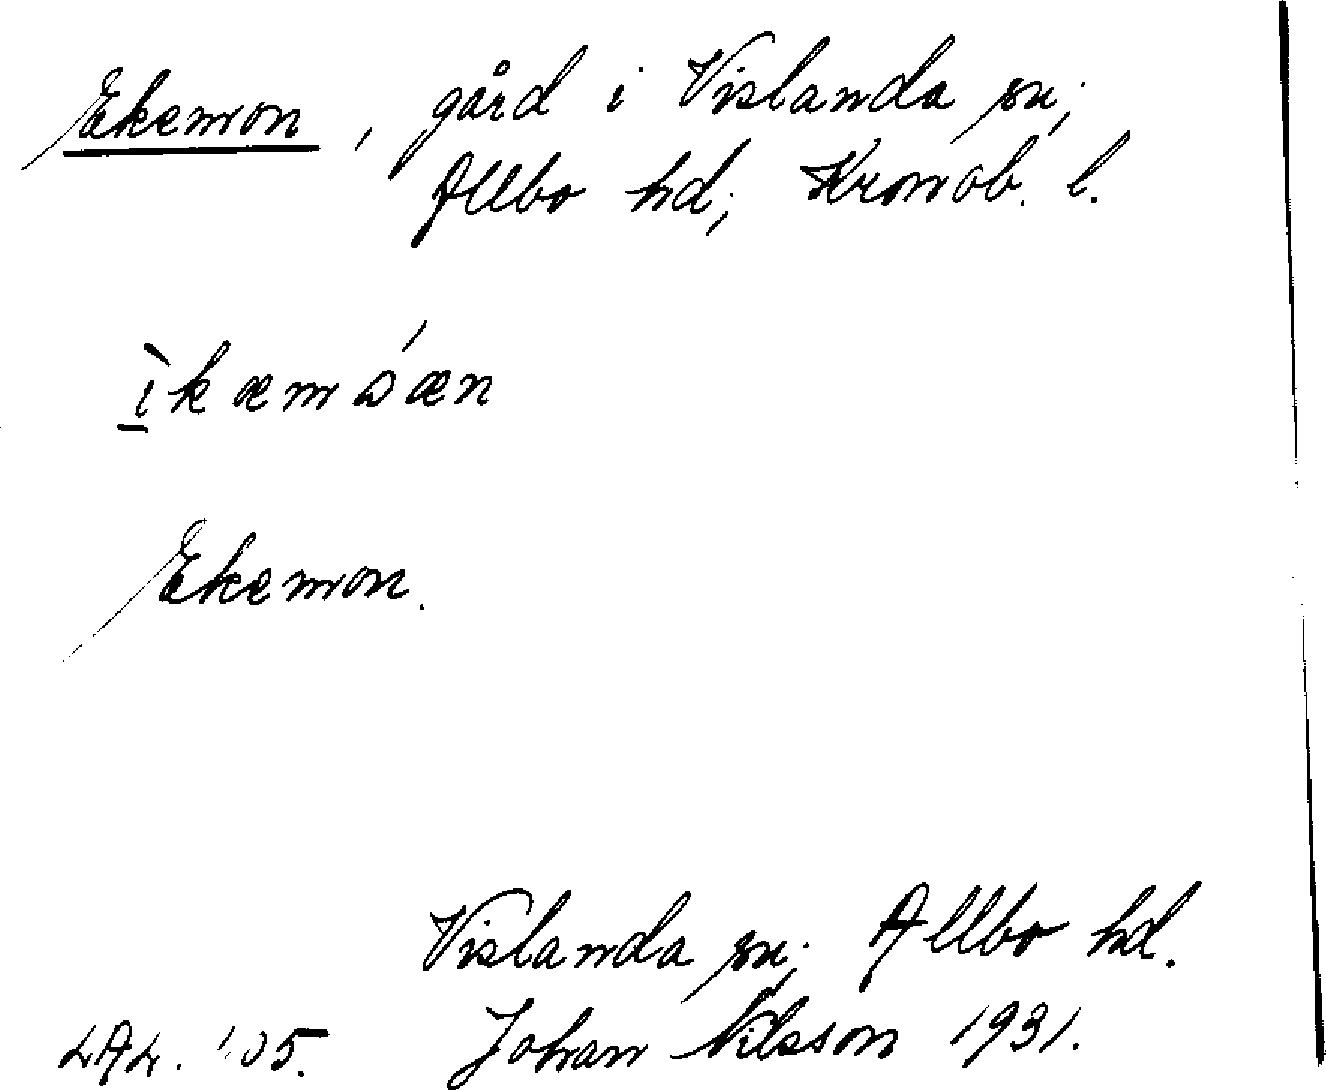 Ekemon, gård i Vislanda sn;
Allbo hd; Kronob. l.
ìkæmɷ́æn
Ekemon.
Vislanda sn; Allbo hd.
LAL. '05. Johan Nilsson 1931.